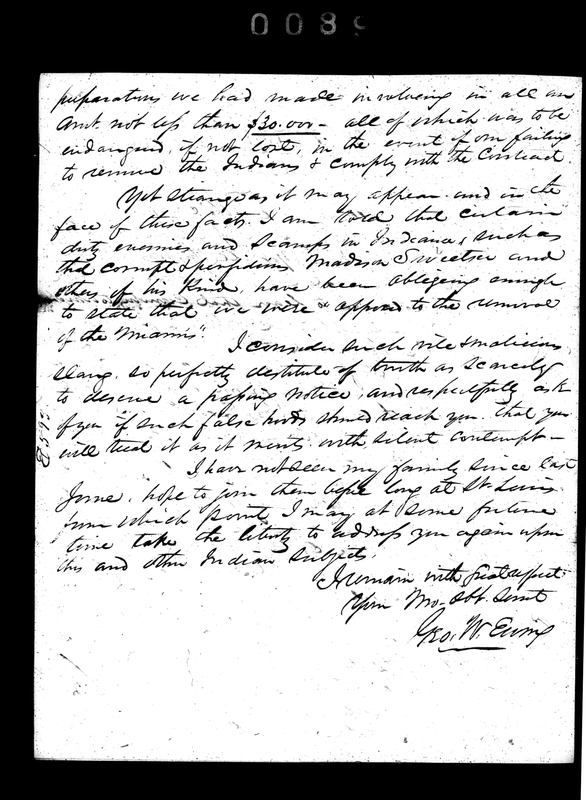 0089
preparations we had made involving in all an
Amt. not less than $30.000 - all of which was to be
endangered, if not lost, in the event of our failing
to remove the Indians & comply with the Contract
Yet strange as it may appear and in the
face of these facts. I am told that certain
dirty enemies and scamps in Indiana, such as
that corrupt & perfidious Madison Sweetser and
others of his kind, have been obliging enough
to state that we were opposed to the removal
of the "Miamis"
I consider such vile & malicious
slang, so perfectly destitute of truth as scarcely
to deserve a passing notice, and respectfully ask
of you if such false hoods should reach you. that you
will treat it as it merits with silent contempt -
I have not seen my family since last
June, hope to join them before long at St. Louis
from which point I may at some future
time take the liberty to address you again upon
this and other Indian subjects.
I remain with great respect
Your Mo. Obt. Servt
Geo. W. Ewing